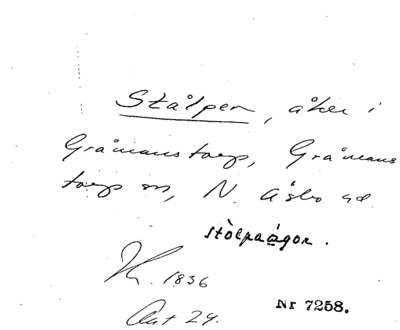 Stålpen, åker i
Gråmanstorp, Gråmans
torp sn, N. Åsbo hd.
stòlpaågor.
K. 1836
Ant 29.
Nr 7258.